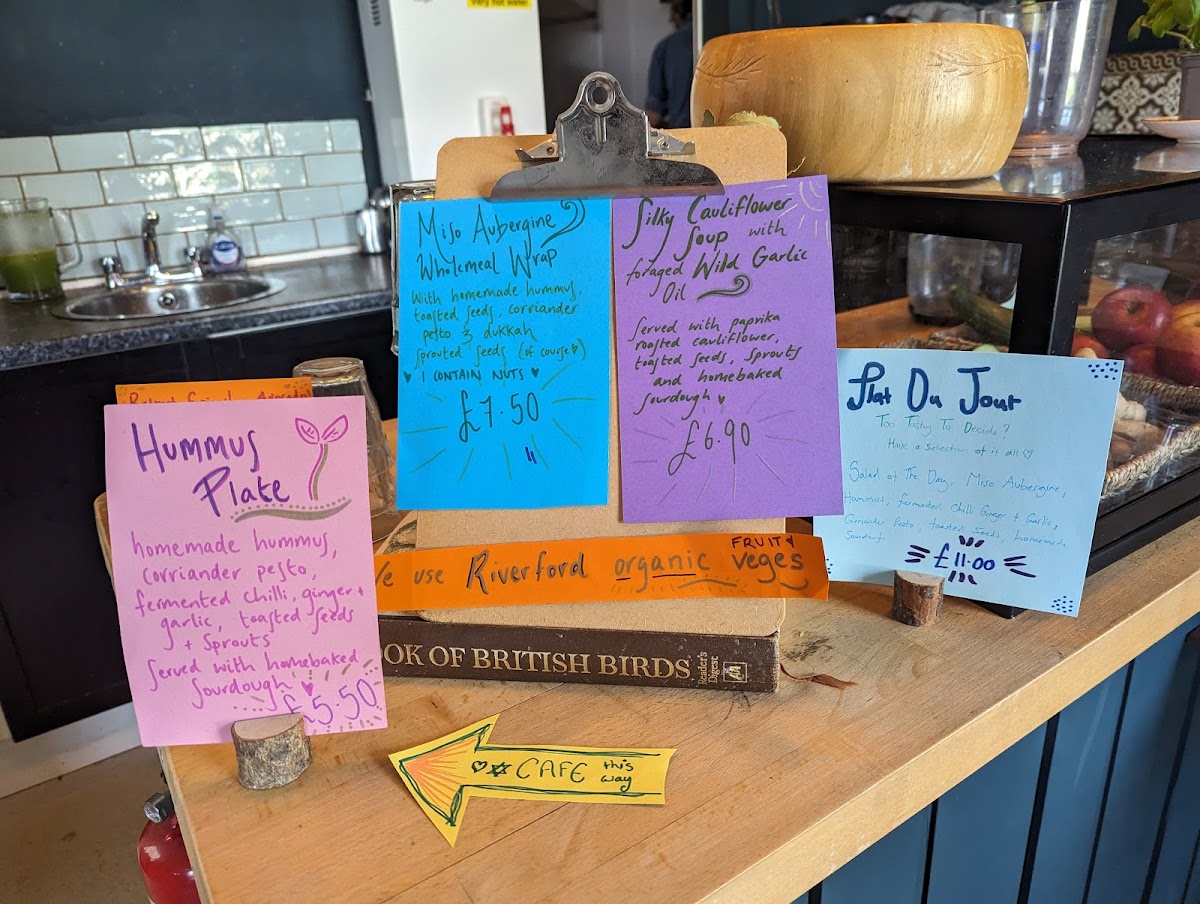 Very hot water
Miso Aubergine
Wholemeal Wrap
With homemade hummus,
toasted seeds, corriander
pesto & dukkah
sprouted seeds (of course ♡)
♥ I CONTAIN NUTS ♥
£7.50
Silky Cauliflower
Soup with
foraged Wild Garlic
Oil
Served with paprika
roasted cauliflower,
toasted seeds, sprouts
and homebaked
sourdough ♥
£6.90
Plat Du Jour
Too Tasty To Decide?
Have a selection of it all ♡
Salad of The Day, Miso Aubergine,
Hummus, fermented Chilli Ginger + Garlic,
Corriander Pesto, toasted Seeds, homemade
Sourdout
£11.00
Hummus
Plate
homemade hummus,
corriander pesto,
fermented chilli, ginger +
garlic, toasted seeds
+ Sprouts
Served with homebaked
Sourdough ♥
£5.50
We use Riverford organic FRUIT & veges
OOK OF BRITISH BIRDS
Reader's
Digest
♡ ✡ CAFE this
way